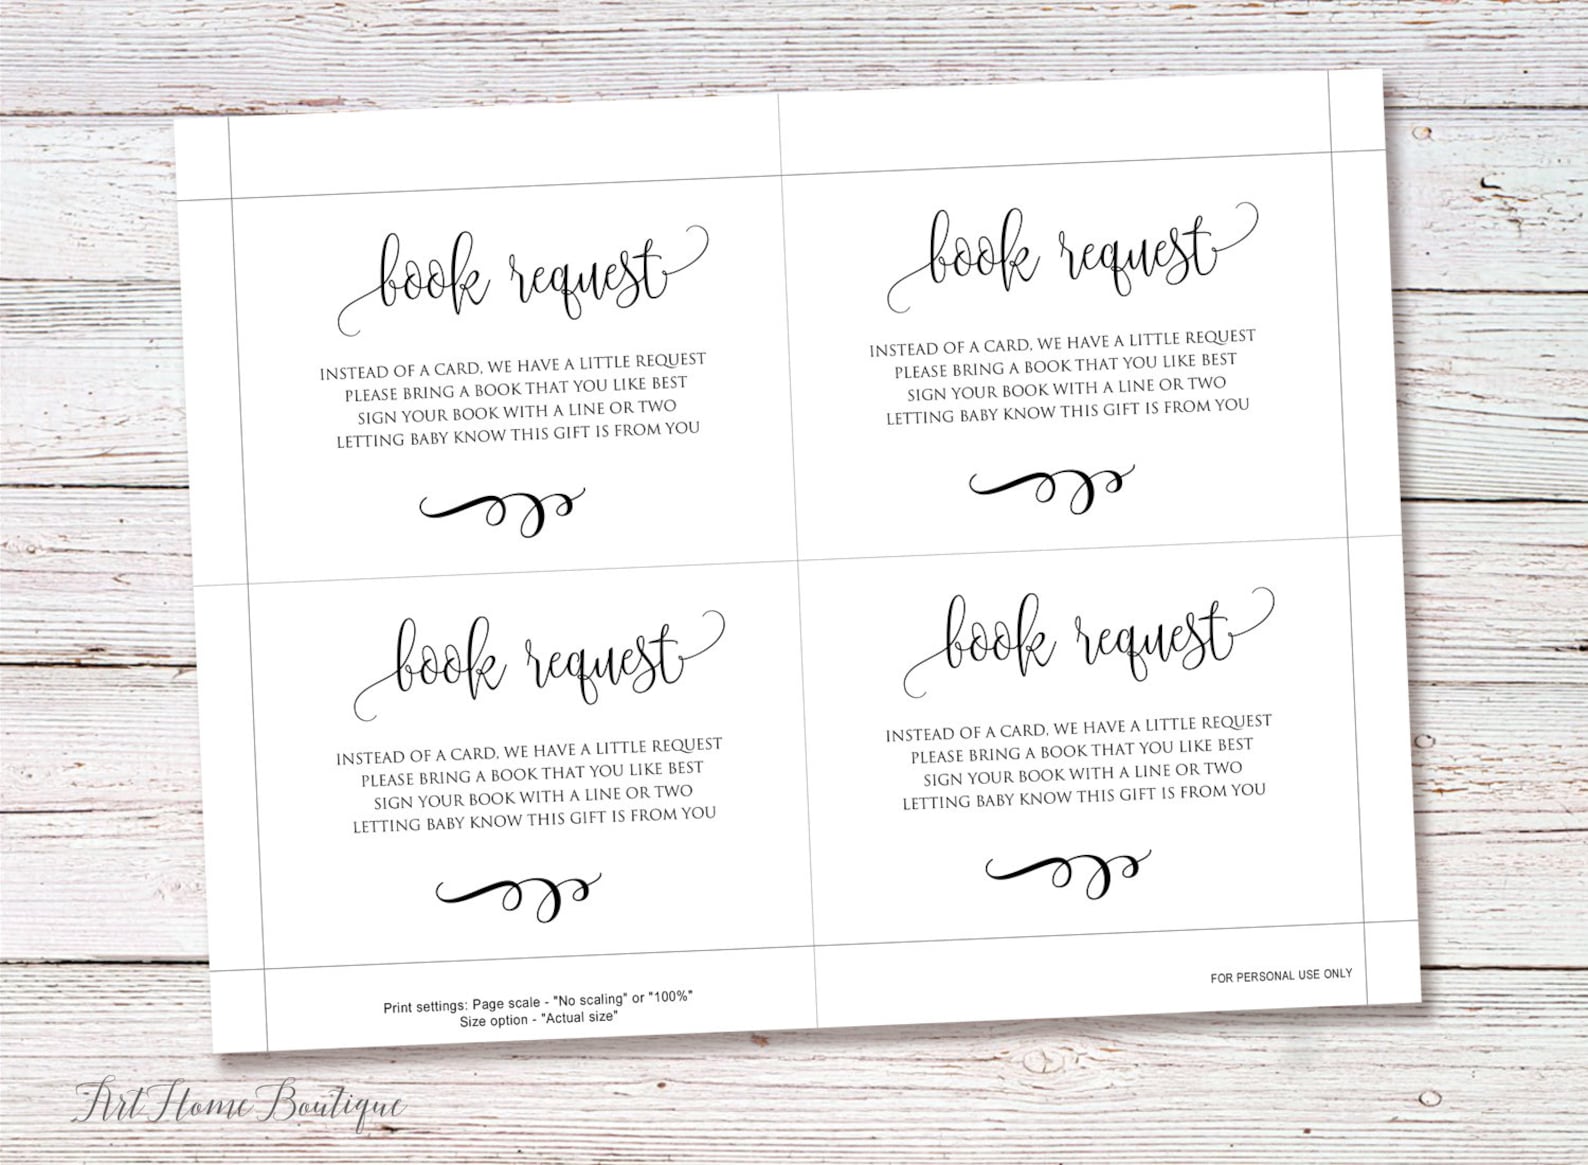 book request
INSTEAD OF A CARD, WE HAVE A LITTLE REQUEST
PLEASE BRING A BOOK THAT YOU LIKE BEST
SIGN YOUR BOOK WITH A LINE OR TWO
LETTING BABY KNOW THIS GIFT IS FROM YOU
book request
INSTEAD OF A CARD, WE HAVE A LITTLE REQUEST
PLEASE BRING A BOOK THAT YOU LIKE BEST
SIGN YOUR BOOK WITH A LINE OR TWO
LETTING BABY KNOW THIS GIFT IS FROM YOU
book request
INSTEAD OF A CARD, WE HAVE A LITTLE REQUEST
PLEASE BRING A BOOK THAT YOU LIKE BEST
SIGN YOUR BOOK WITH A LINE OR TWO
LETTING BABY KNOW THIS GIFT IS FROM YOU
book request
INSTEAD OF A CARD, WE HAVE A LITTLE REQUEST
PLEASE BRING A BOOK THAT YOU LIKE BEST
SIGN YOUR BOOK WITH A LINE OR TWO
LETTING BABY KNOW THIS GIFT IS FROM YOU
Print settings: Page scale - "No scaling" or "100%"
Size option - "Actual size"
FOR PERSONAL USE ONLY
Art Home Boutique